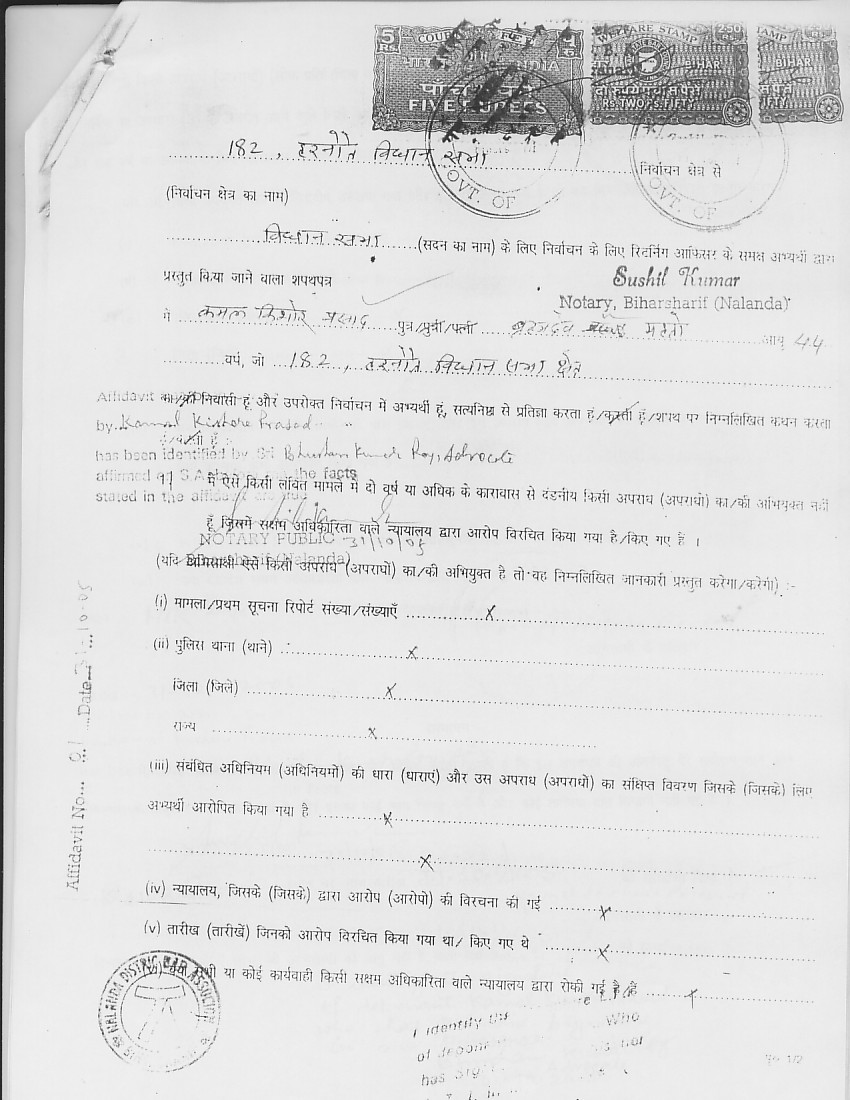 5 Rs.
COURT FEE
FIVE RUPEES
WELFARE STAMP
BIHAR
RS TWO/PS FIFTY
STAMP
BIHAR
182, हरनौत विधान सभा निर्वाचन क्षेत्र से
GOVT. OF
GOVT. OF
(निर्वाचन क्षेत्र का नाम)
विधान सभा (सदन का नाम) के लिए निर्वाचन के लिए रिटर्निंग आफिसर के समक्ष अभ्यर्थी द्वारा
प्रस्तुत किया जाने वाला शपथपत्र
Sushil Kumar
Notary, Biharsharif (Nalanda)
मैं कमल किशोर प्रसाद पुत्र/पुत्री/पत्नी महतो आयु 44
वर्ष, जो 182, हरनौत विधान सभा क्षेत्र
Affidavit
का/की निवासी हूं और उपरोक्त निर्वाचन में अभ्यर्थी हूं, सत्यनिष्ठा से प्रतिज्ञा करता हूं/करती हूं/शपथ पर निम्नलिखित कथन करता
by. Kamal Kishore Prasad
हूं/करती हूं :-
has been identified by Sri Bhushan Kumar Roy, Advocate
affirmed the facts
stated in the affidavit are true
1) मैं ऐसे किसी लंबित मामले में दो वर्ष या अधिक के कारावास से दंडनीय किसी अपराध (अपराधों) का/की अभियुक्त नहीं
हूँ जिसमें सक्षम अधिकारिता वाले न्यायालय द्वारा आरोप विरचित किया गया है/किए गए हैं ।
NOTARY PUBLIC 31/10/05
Biharsharif (Nalanda)
(यदि अभिसाक्षी ऐसे किसी अपराध (अपराधों) का/की अभियुक्त है तो वह निम्नलिखित जानकारी प्रस्तुत करेगा/करेगी) :-
(i) मामला/प्रथम सूचना रिपोर्ट संख्या/संख्याएँ x
(ii) पुलिस थाना (थाने) x
जिला (जिले) x
राज्य x
(iii) संबंधित अधिनियम (अधिनियमों) की धारा (धाराएं) और उस अपराध (अपराधों) का संक्षिप्त विवरण जिसके (जिसके) लिए
अभ्यर्थी आरोपित किया गया है x
x
(iv) न्यायालय, जिसके (जिसके) द्वारा आरोप (आरोपों) की विरचना की गई x
(v) तारीख (तारीखें) जिनको आरोप विरचित किया गया था/ किए गए थे x
सभी या कोई कार्यवाही किसी सक्षम अधिकारिता वाले न्यायालय द्वारा रोकी गई है/हैं x
Affidavit No... 01 ...Date 31-10-05
NALANDA DISTRICT BAR ASSOCIATION
I identify the Who
of
has